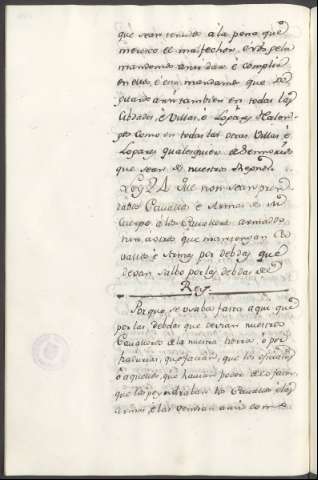 que sean tenudos á la pena, que
merecio el malfechor, é esto que
mandamos assi dar é complir
en ellos, é en mandamos que se
guarde assi tambien en todas las
Cibdades, é Villas, é Logares Realen-
gos como en todas las otras Villas é
Logares qualesquier de Señorios
que sean de nuestros Regnos.
Ley 24 Que non sean pren-
dados Cauallos é Armas de su
Cuerpo á los Caualleros armados
nin á otros que mantengan Ca-
vallos é Armas por debdas que
devan salbo por las debdas del
Rey.
Porque se usaba fasta aqui que
por las debdas que devian nuestros
Caualleros de la nuestra tierra, ó por
que facian, que los oficiales
ó aquellos, que havian poder de lo facer,
que les peyndraban los Cavallos é las
armas, é las vendian assi como